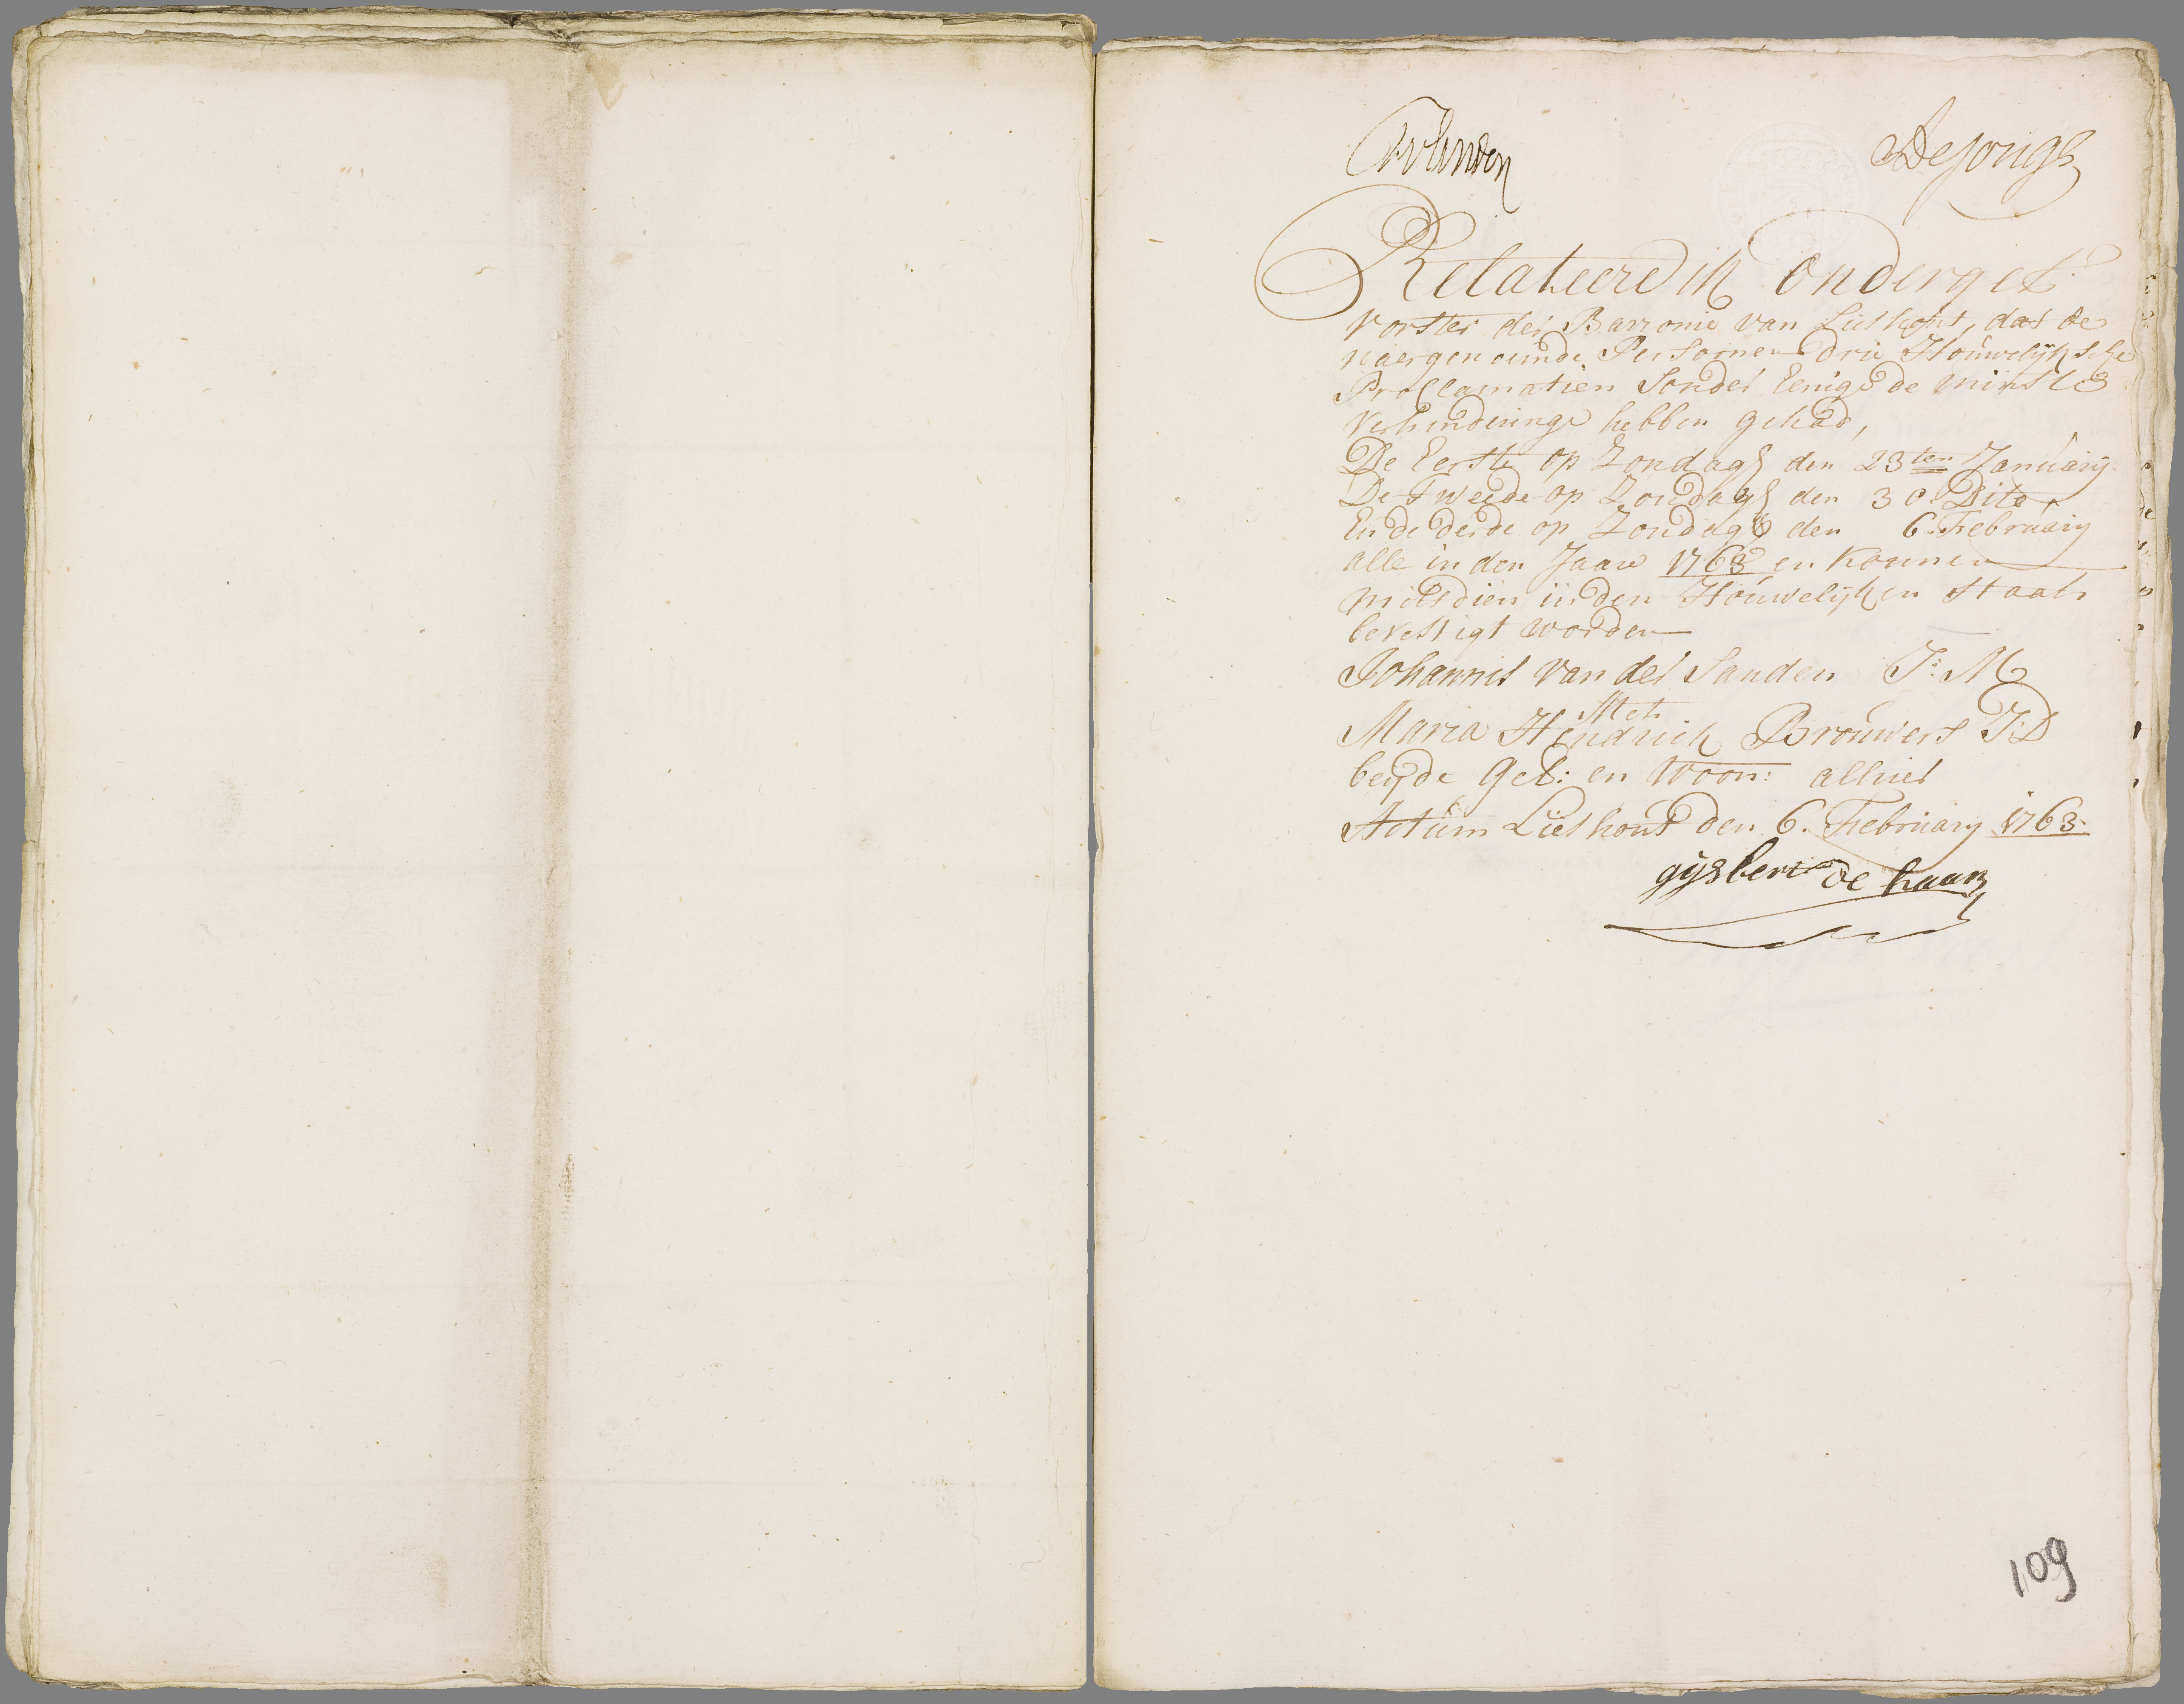 De Jongh
Relateere ik onderget:
vorster der Barronie van Lieshout, dat de
naergenoemde Persoonen drie Houwelijksche
Proclamatien Sonder Eenige de minste
verhinderinge hebben gehad,
De Eerste op Zondagh den 23ten January
De Tweede op Zondagh den 30. Dito
En de derde op Zondagh den 6. February
alle in den Jaare 1763 en konnen
mitsdien in den Houwelijken Staat
bevestigt worden
Johannis van der Sanden J: M
Met
Maria Hendrick Brouwers J: D
beyde Geb: en Woon: alhier
Actum Lieshout den 6. February 1763.
gijsbert de haas
109